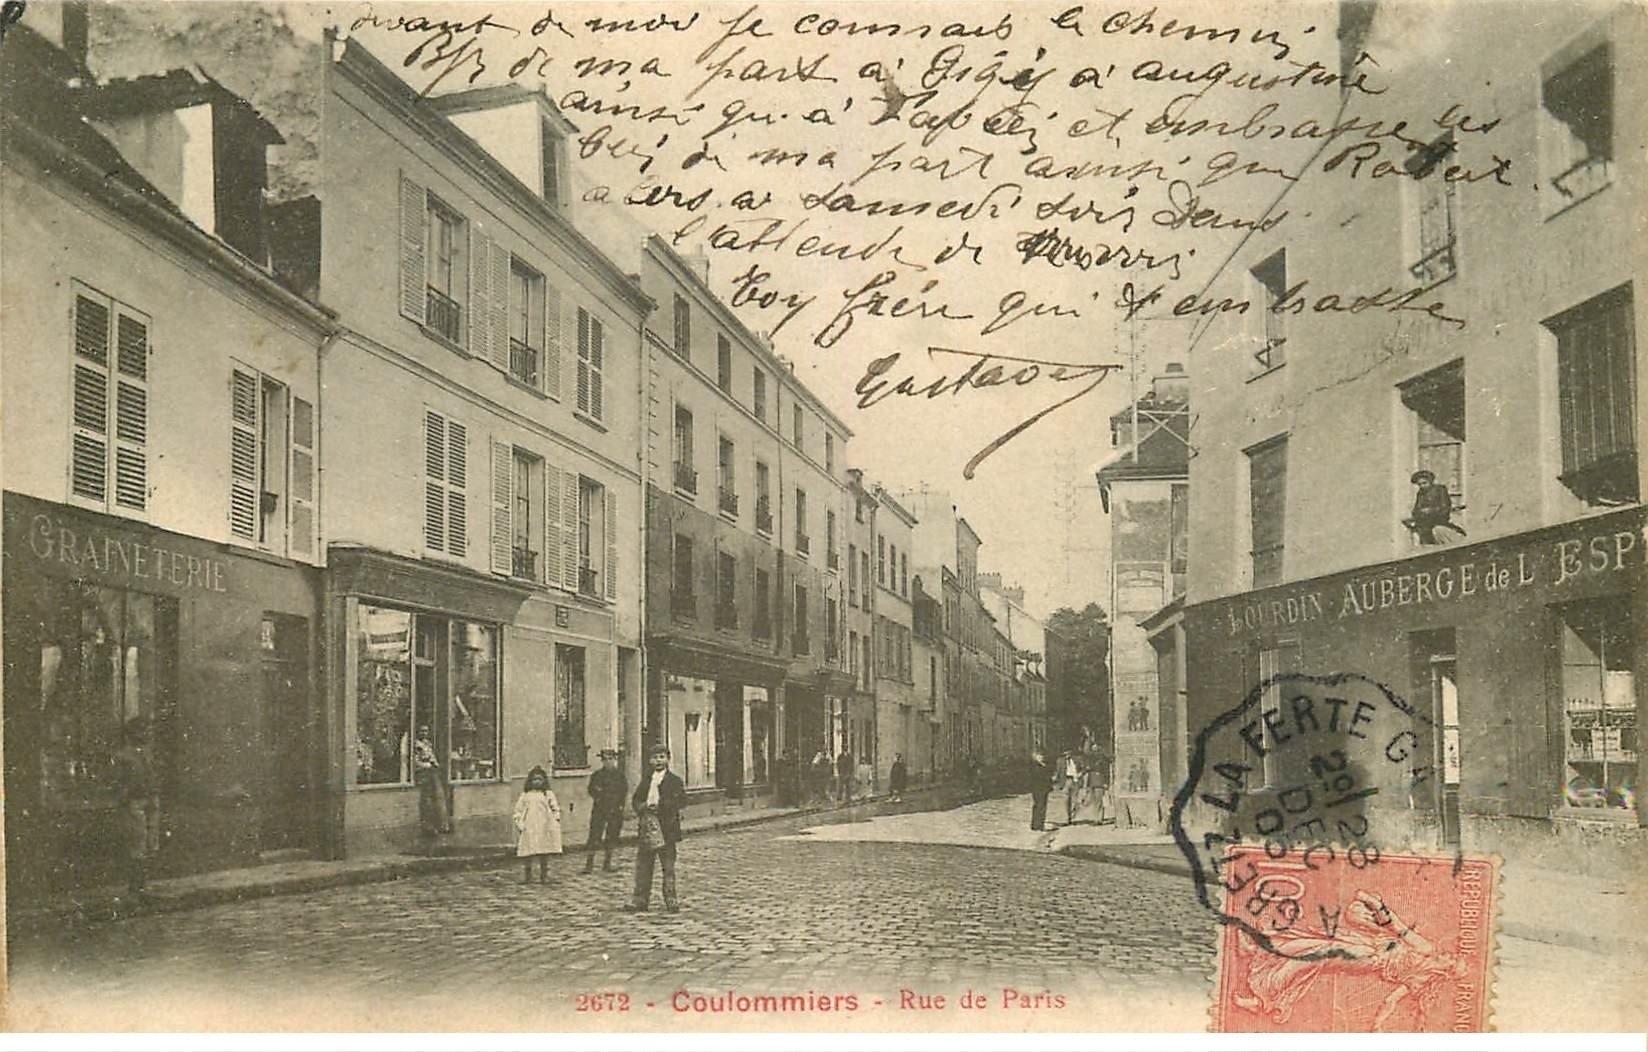 devant de moi je connais le chemin
de ma part à Gigy à augustine
ainsi qu'à et embrasse les
de ma part ainsi que Robert.
alers a samedi soir Dans
l'attende de
Toy frère qui t'embrasse
Gustave
GRAINETERIE
LOURDIN AUBERGE de L'ESP
LA FERTE GA
A GRETZ
2°/ 28
DEC
05
10
REPUBLIQUE FRANC
2672 - Coulommiers - Rue de Paris